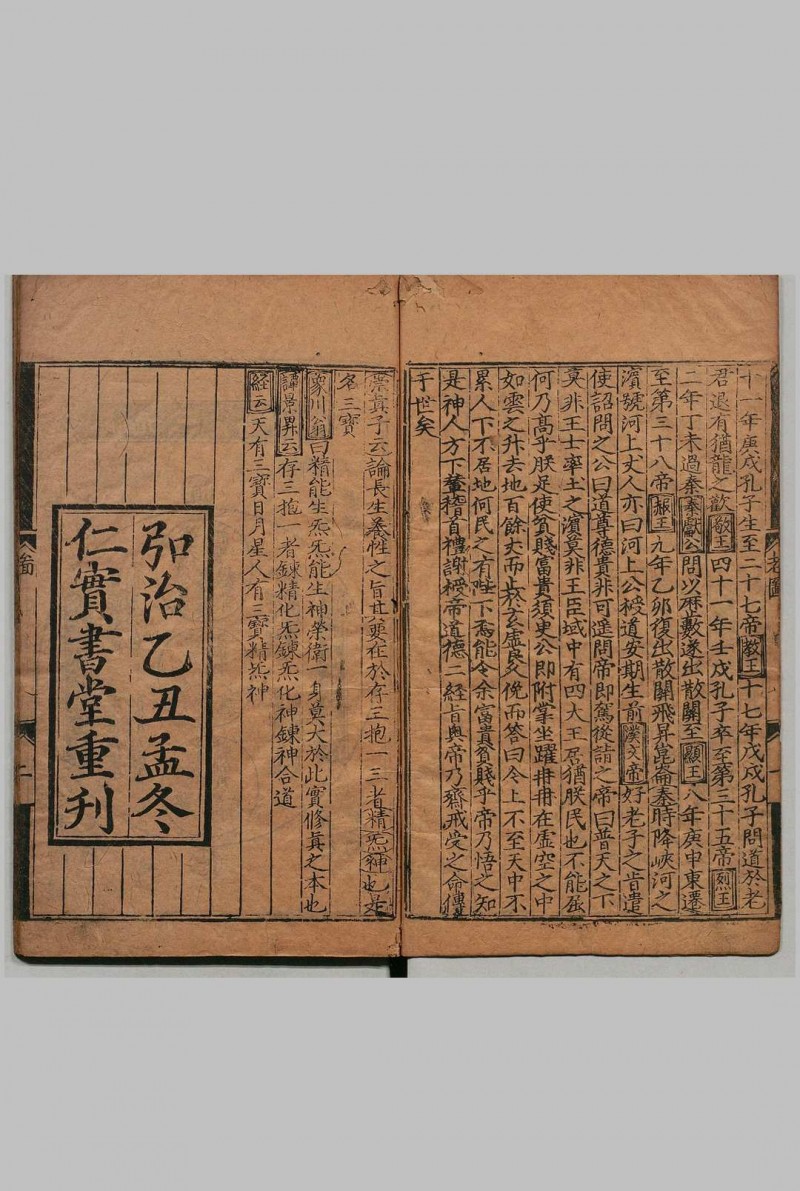 十一年庚戌孔子生至二十七帝敬王十七年戊戌孔子問道於老
君退有猶龍之歎敬王四十一年壬戌孔子卒至第三十五帝烈王
二年丁未過秦秦獻公問以歷數遂出散關至顯王八年庚申東遷
至第三十八帝赧王九年乙卯復出散關飛昇崑崙秦時降峽河之
濱號河上丈人亦曰河上公授道安期生前漢文帝好老子之旨遣
使詔問之公曰道尊德貴非可遥問帝即駕後詣之帝曰普天之下
莫非王士率土之濱莫非王臣域中有四大王居猶朕民也不能屈
何乃髙乎朕足使貧賤富貴須臾公即附掌坐躍冉冉在虛空之中
如雲之升去地百餘丈而止於玄虛良久俛而答曰今上不至天中不
累人下不居地何民之有陛下焉能令余富貴貧賤乎帝乃悟之知
是神人方下輦稽首禮謝授帝道德二經旨奥帝乃齋戒受之命傳
于世矣
真子云論長生養性之旨其要在於存三抱一三者精炁神也是
名三寳
象川翁曰精能生炁炁能生神榮衛一身莫大於此實修真之本也
譚景昇云存三抱一者錬精化炁錬炁化神錬神合道
経云天有三寳日月星人有三寳精炁神
弘治乙丑孟冬
仁實書堂重刋
老圖
一
二